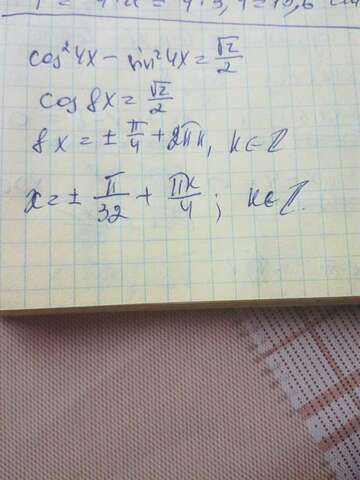 cos²4x - sin²4x = √2/2
cos 8x = √2/2
8x = ± π/4 + 2πk, k ∈ Z
x = ± π/32 + πk/4; k ∈ Z.